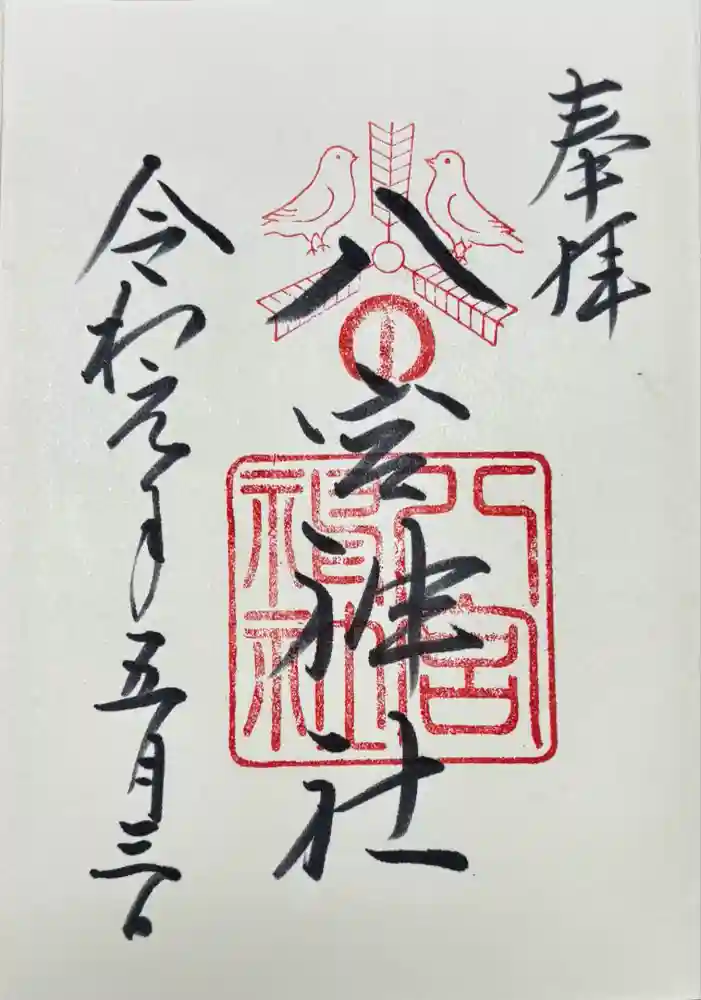 奉拝
八宮神社
八宮
神社
令和元年五月三日